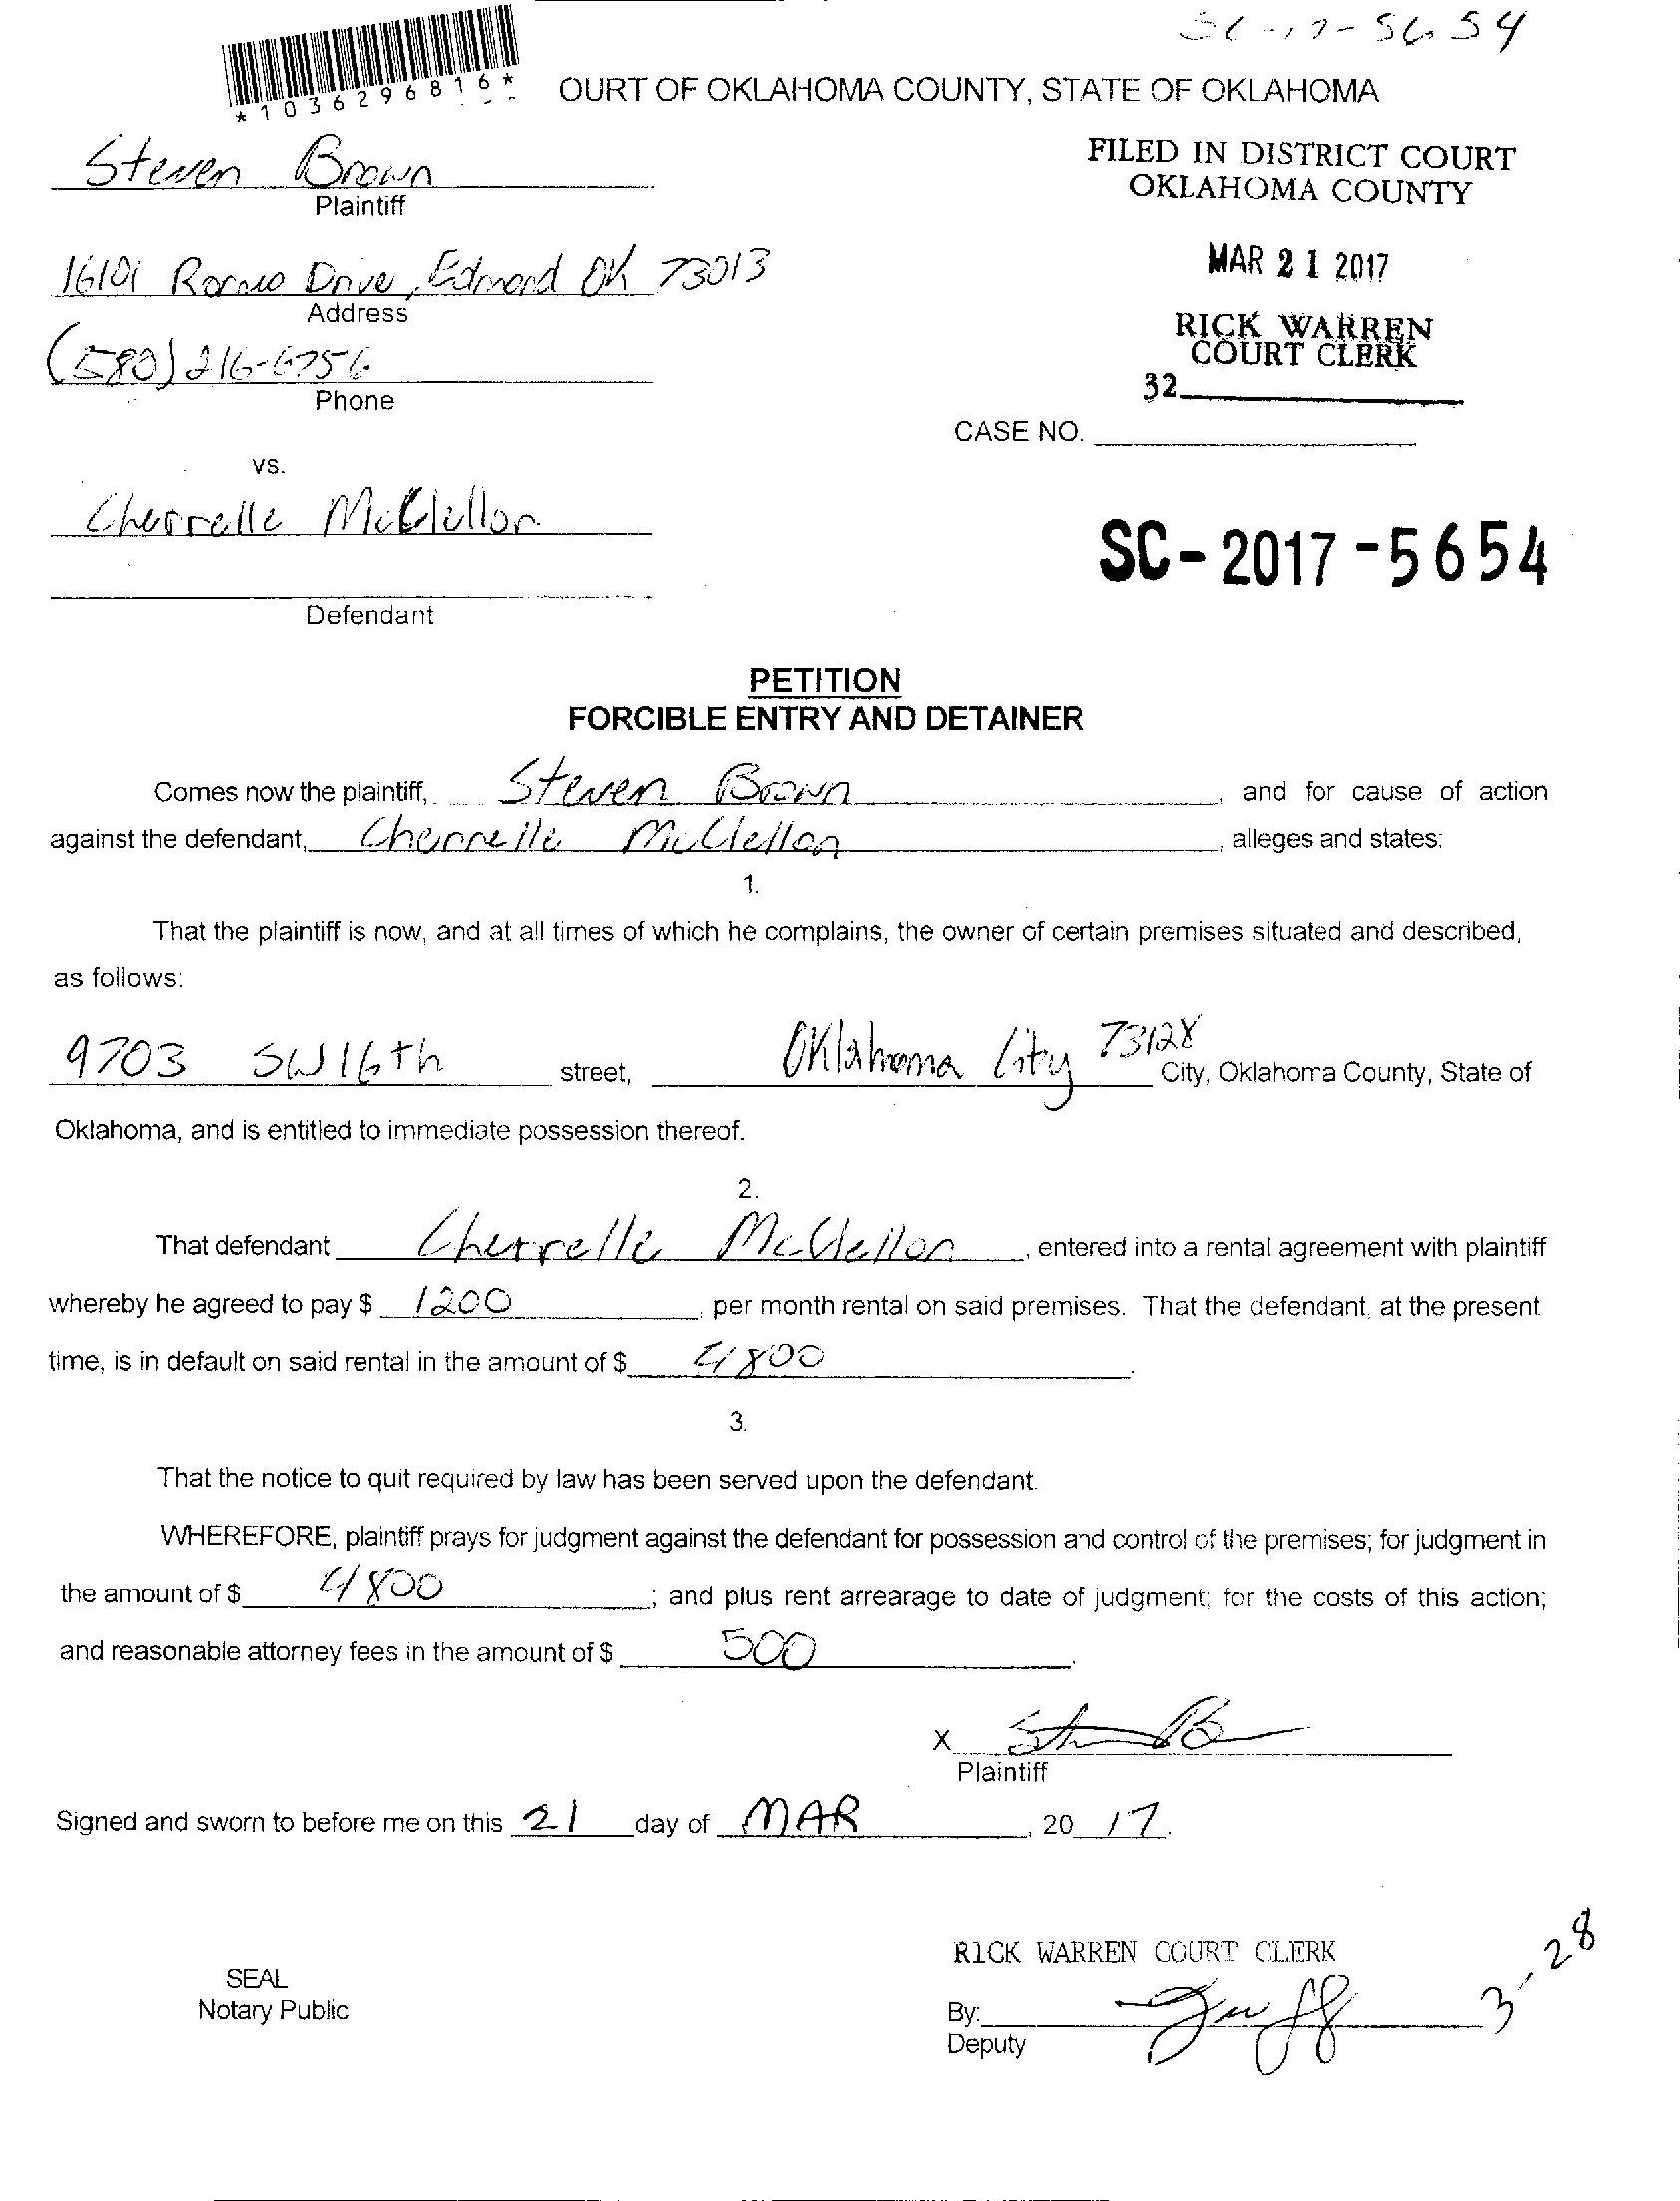 SC-17-5654
*1036296816*
OURT OF OKLAHOMA COUNTY, STATE OF OKLAHOMA
Steven Brown
Plaintiff
FILED IN DISTRICT COURT
OKLAHOMA COUNTY
MAR 21 2017
RICK WARREN
COURT CLERK
32
Drive, Edmond OK 73013
Address
(580) 216-6756
Phone
CASE NO.
vs.
Cherrelle McClellon
SC-2017-5654
Defendant
PETITION
FORCIBLE ENTRY AND DETAINER
Comes now the plaintiff, Steven Brown, and for cause of action
against the defendant, Cherrelle McClellan, alleges and states:
1.
That the plaintiff is now, and at all times of which he complains, the owner of certain premises situated and described,
as follows:
9703 SW 16th street, Oklahoma City 73128 City, Oklahoma County, State of
Oklahoma, and is entitled to immediate possession thereof.
2.
That defendant Cherrelle McClellon, entered into a rental agreement with plaintiff
whereby he agreed to pay $ 1200, per month rental on said premises. That the defendant, at the present
time, is in default on said rental in the amount of $ 4800.
3.
That the notice to quit required by law has been served upon the defendant.
WHEREFORE, plaintiff prays for judgment against the defendant for possession and control of the premises; for judgment in
the amount of $ 4800; and plus rent arrearage to date of judgment; for the costs of this action;
and reasonable attorney fees in the amount of $ 500.
X
Plaintiff
Signed and sworn to before me on this 21 day of MAR, 20 17.
RICK WARREN COURT CLERK
3-28
SEAL
Notary Public
By:
Deputy